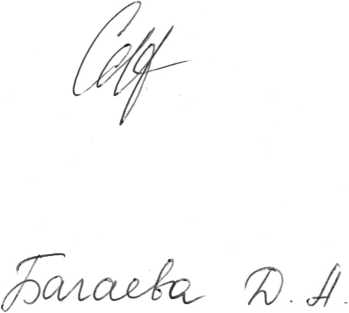 Багаева Д. А.